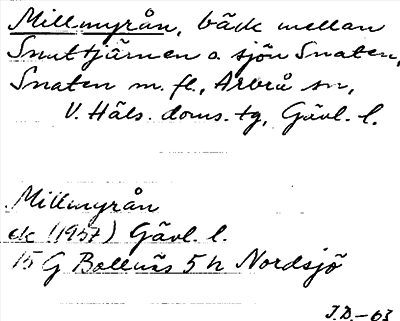 Millmyrån, bäck mellan
Snuttjärnen o. sjön Snaten,
Snaten m. fl., Arbrå sn,
V. Häls. doms. tg, Gävl. l.
Millmyrån
ek (1957) Gävl. l.
15 G Bollnäs 5 h Nordsjö
J.D.-63